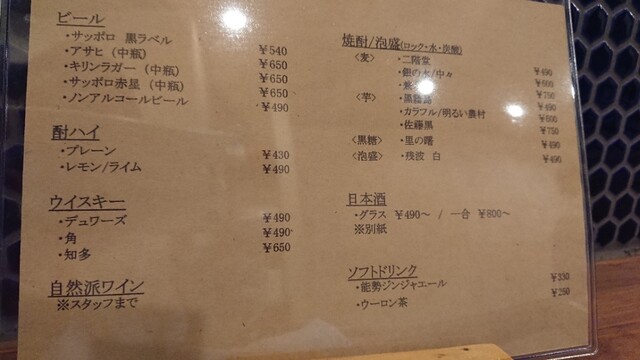 ビール
・サッポロ 黒ラベル ¥540
・アサヒ (中瓶) ¥650
・キリンラガー (中瓶) ¥650
・サッポロ赤星 (中瓶) ¥650
・ノンアルコールビール ¥490
酎ハイ
・プレーン ¥430
・レモン/ライム ¥490
ウイスキー
・デュワーズ ¥490
・角 ¥490
・知多 ¥650
自然派ワイン
※スタッフまで
焼酎/泡盛(ロック・水・炭酸)
〈麦〉 ・二階堂 ¥490
・銀の水/中々 ¥600
¥750
〈芋〉 ・黒霧島 ¥490
・カラフル/明るい農村 ¥600
・佐藤黒 ¥750
〈黒糖〉 ・里の曙 ¥490
〈泡盛〉 ・残波 白 ¥490
日本酒
・グラス ¥490～ / 一合 ¥800～
※別紙
ソフトドリンク
・能勢ジンジャエール ¥330
・ウーロン茶 ¥250